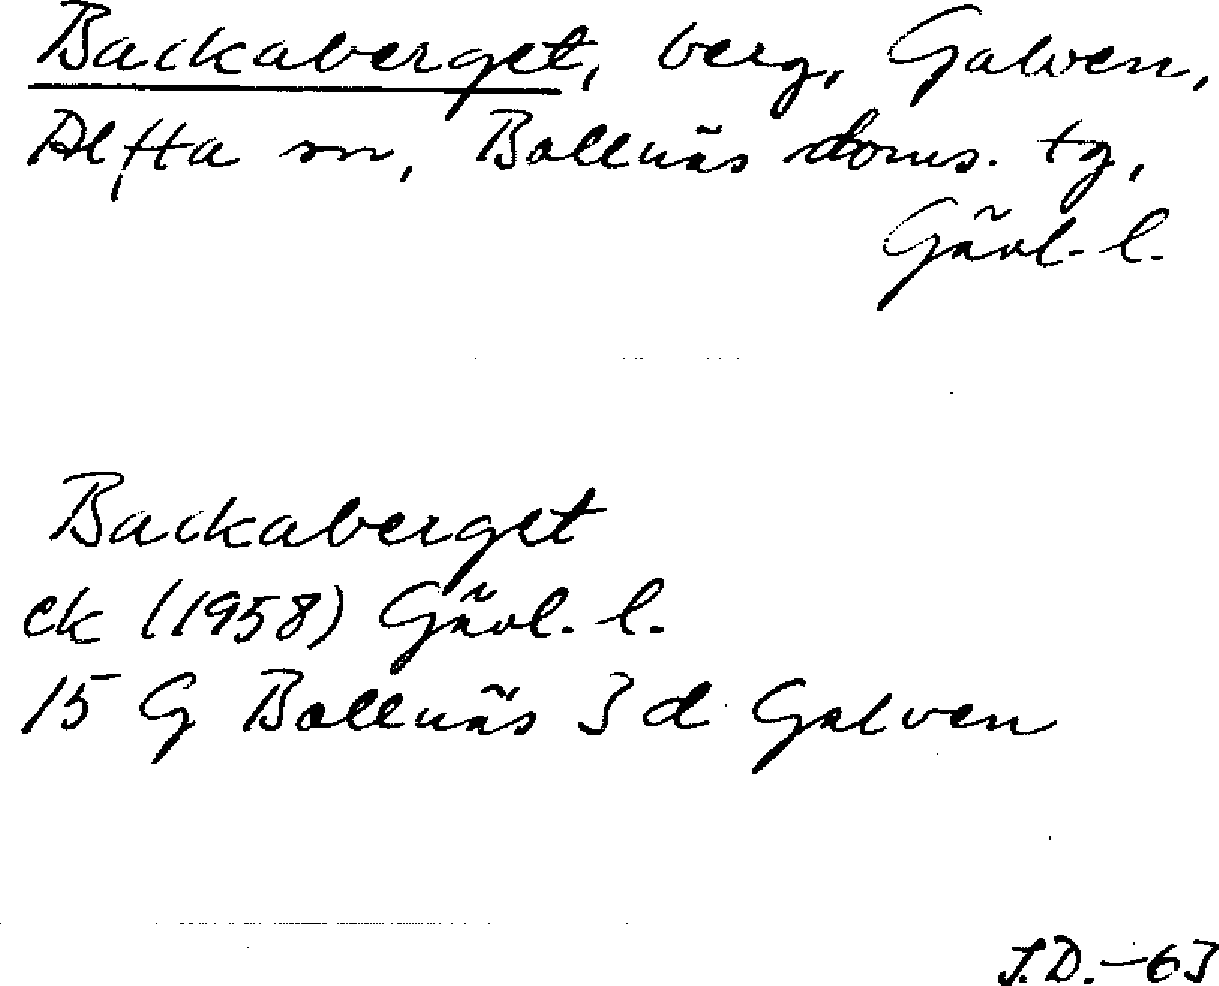 Backaberget, berg, Galven,
Alfta sn, Bollnäs doms. tg,
Gävl. l.
Backaberget
ek (1958) Gävl. l.
15 G Bollnäs 3 d Galven
J.D. -63